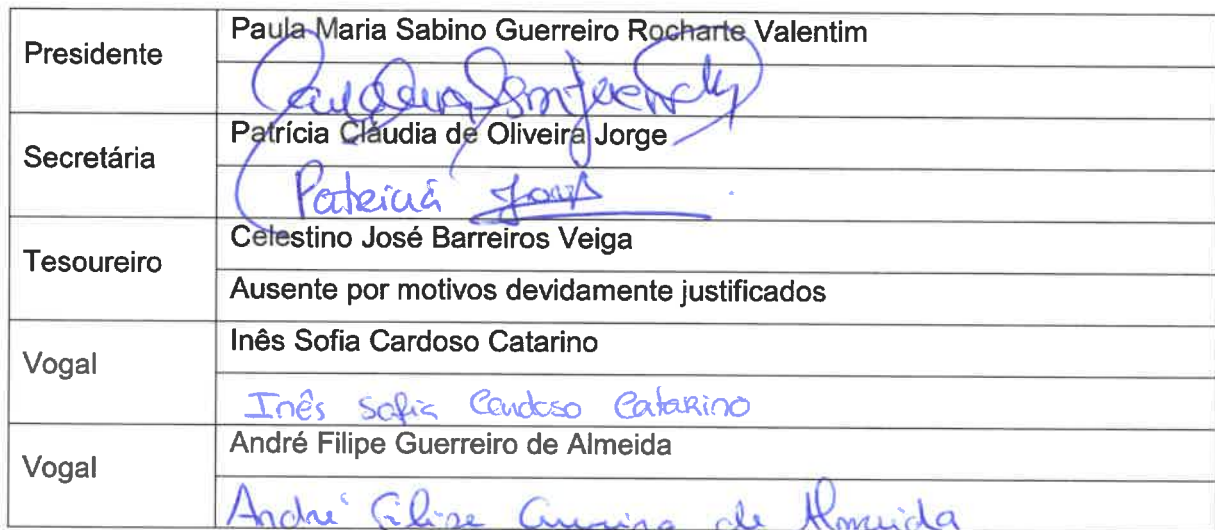 Presidente
Paula Maria Sabino Guerreiro Rocharte Valentim
Secretária
Patrícia Cláudia de Oliveira Jorge
Patricia Jorge
Tesoureiro
Celestino José Barreiros Veiga
Ausente por motivos devidamente justificados
Vogal
Inês Sofia Cardoso Catarino
Inês Sofia Cardoso Catarino
Vogal
André Filipe Guerreiro de Almeida
André Filipe Guerreiro de Almeida